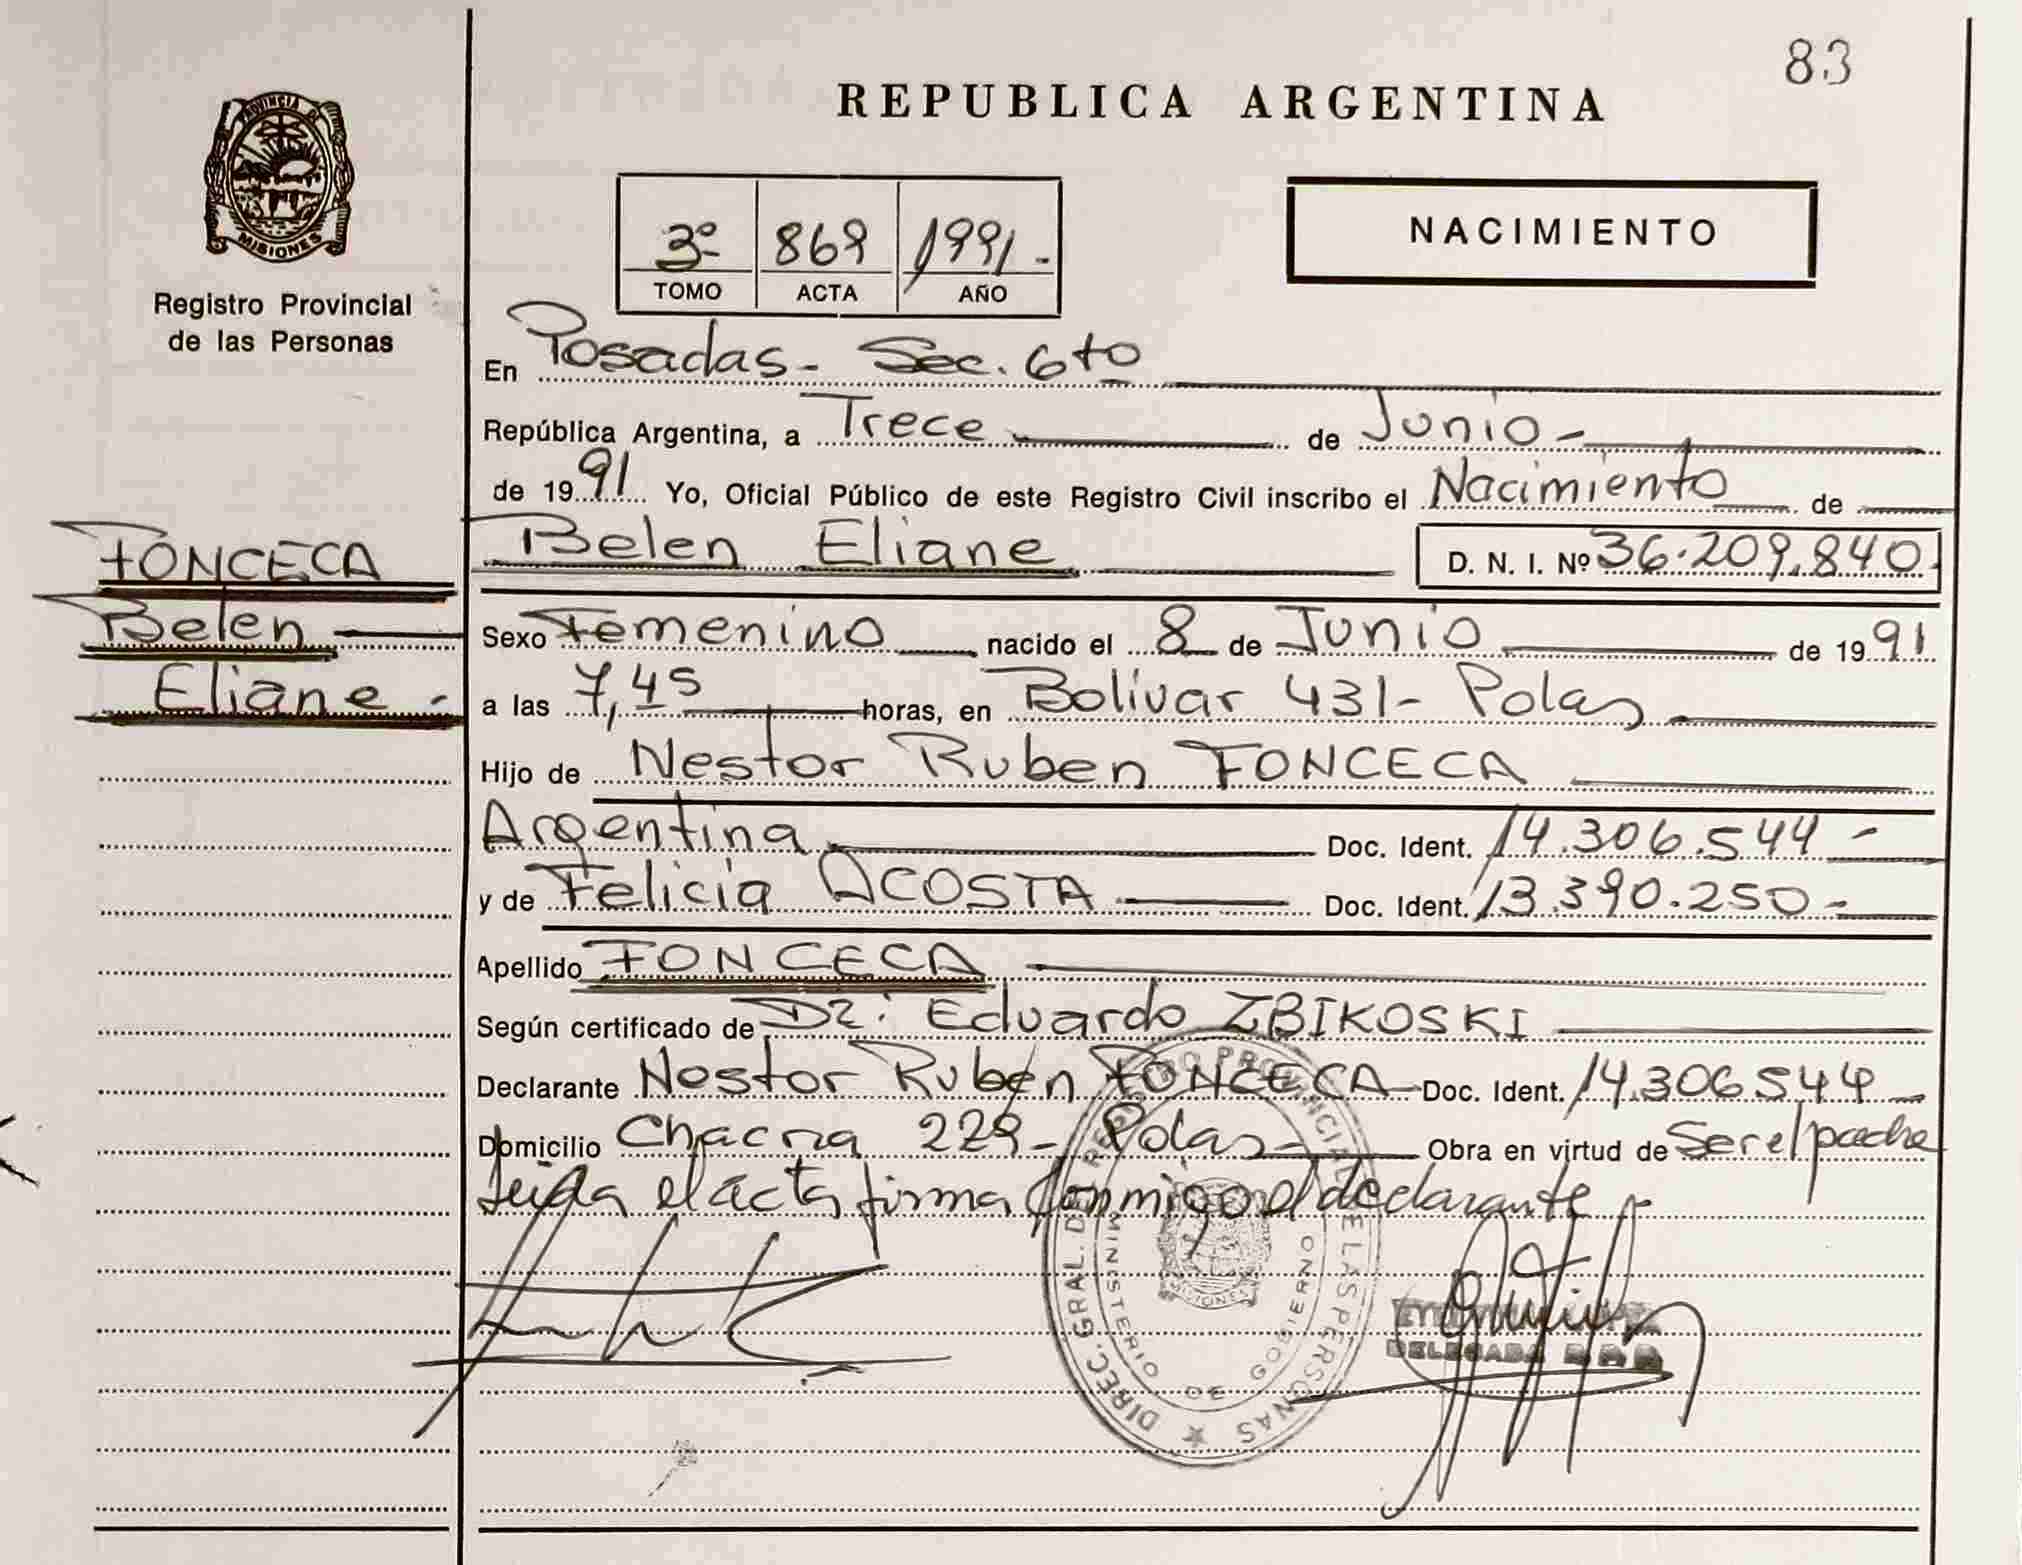 83
REPUBLICA ARGENTINA
PROVINCIA DE
MISIONES
Registro Provincial
de las Personas
3º 869 1991.-
TOMO ACTA AÑO
NACIMIENTO
En Posadas - Sec. 6to
República Argentina, a Trece de Junio -
de 1991 Yo, Oficial Público de este Registro Civil inscribo el Nacimiento de
FONCECA
Belen
Eliane -
Belen Eliane D. N. I. Nº 36.209.840.
Sexo Femenino nacido el 8 de Junio de 1991
a las 7,45 horas, en Bolivar 431 - Pdas
Hijo de Nestor Ruben FONCECA
Argentina Doc. Ident. 14.306.544 -
y de Felicia ACOSTA Doc. Ident. 13.390.250 -
Apellido FONCECA
Según certificado de Dr: Eduardo ZBIKOSKI
Declarante Nestor Ruben FONCECA Doc. Ident. 14.306544
Domicilio Chacra 229 - Pdas - Obra en virtud de Ser el padre
Leida el acta firma conmigo el declarante
DIREC. GRAL. DEL REGISTRO PROVINCIAL DE LAS PERSONAS
MINISTERIO DE GOBIERNO
MISIONES
DELEGADA